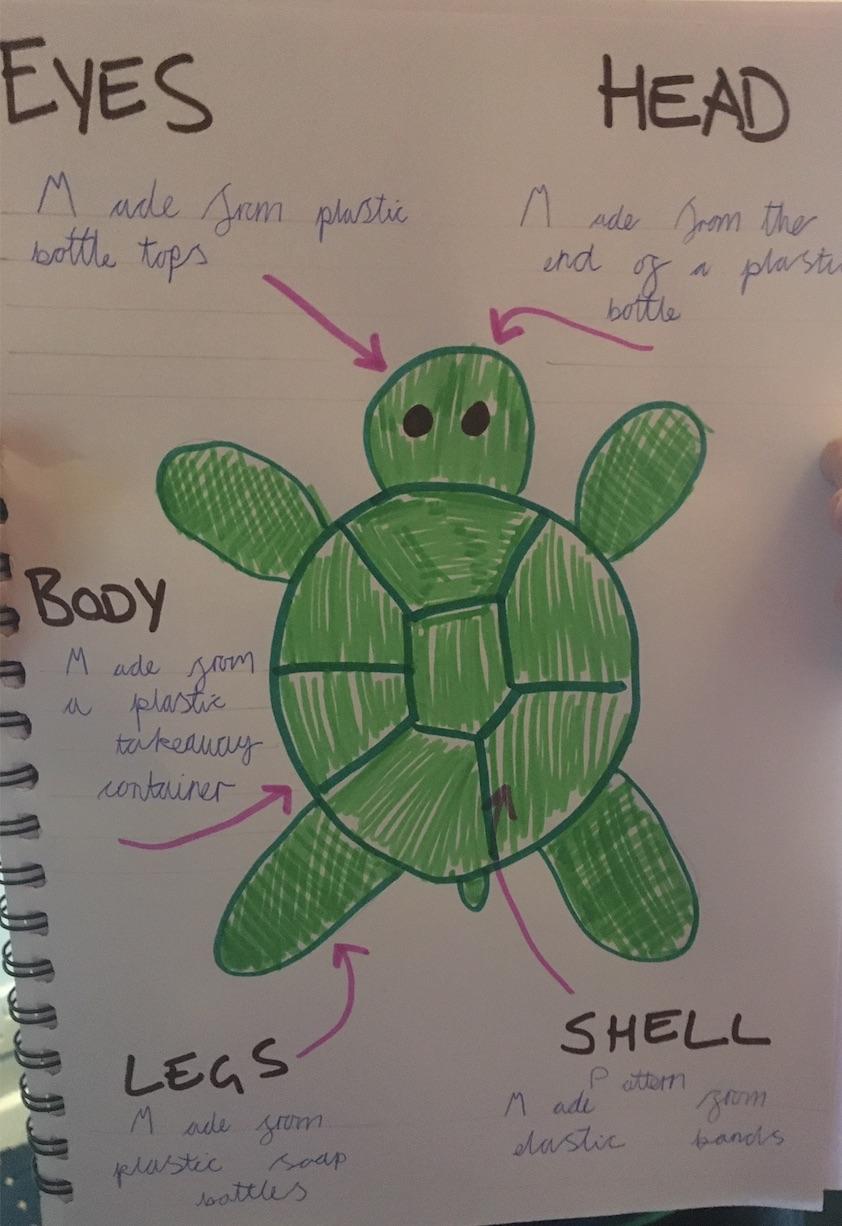 EYES
Made from plastic
bottle tops
HEAD
Made from the
end of a plastic
bottle
BODY
Made from
a plastic
takeaway
container
LEGS
Made from
plastic soap
bottles
SHELL
Pattern
Made from
elastic bands